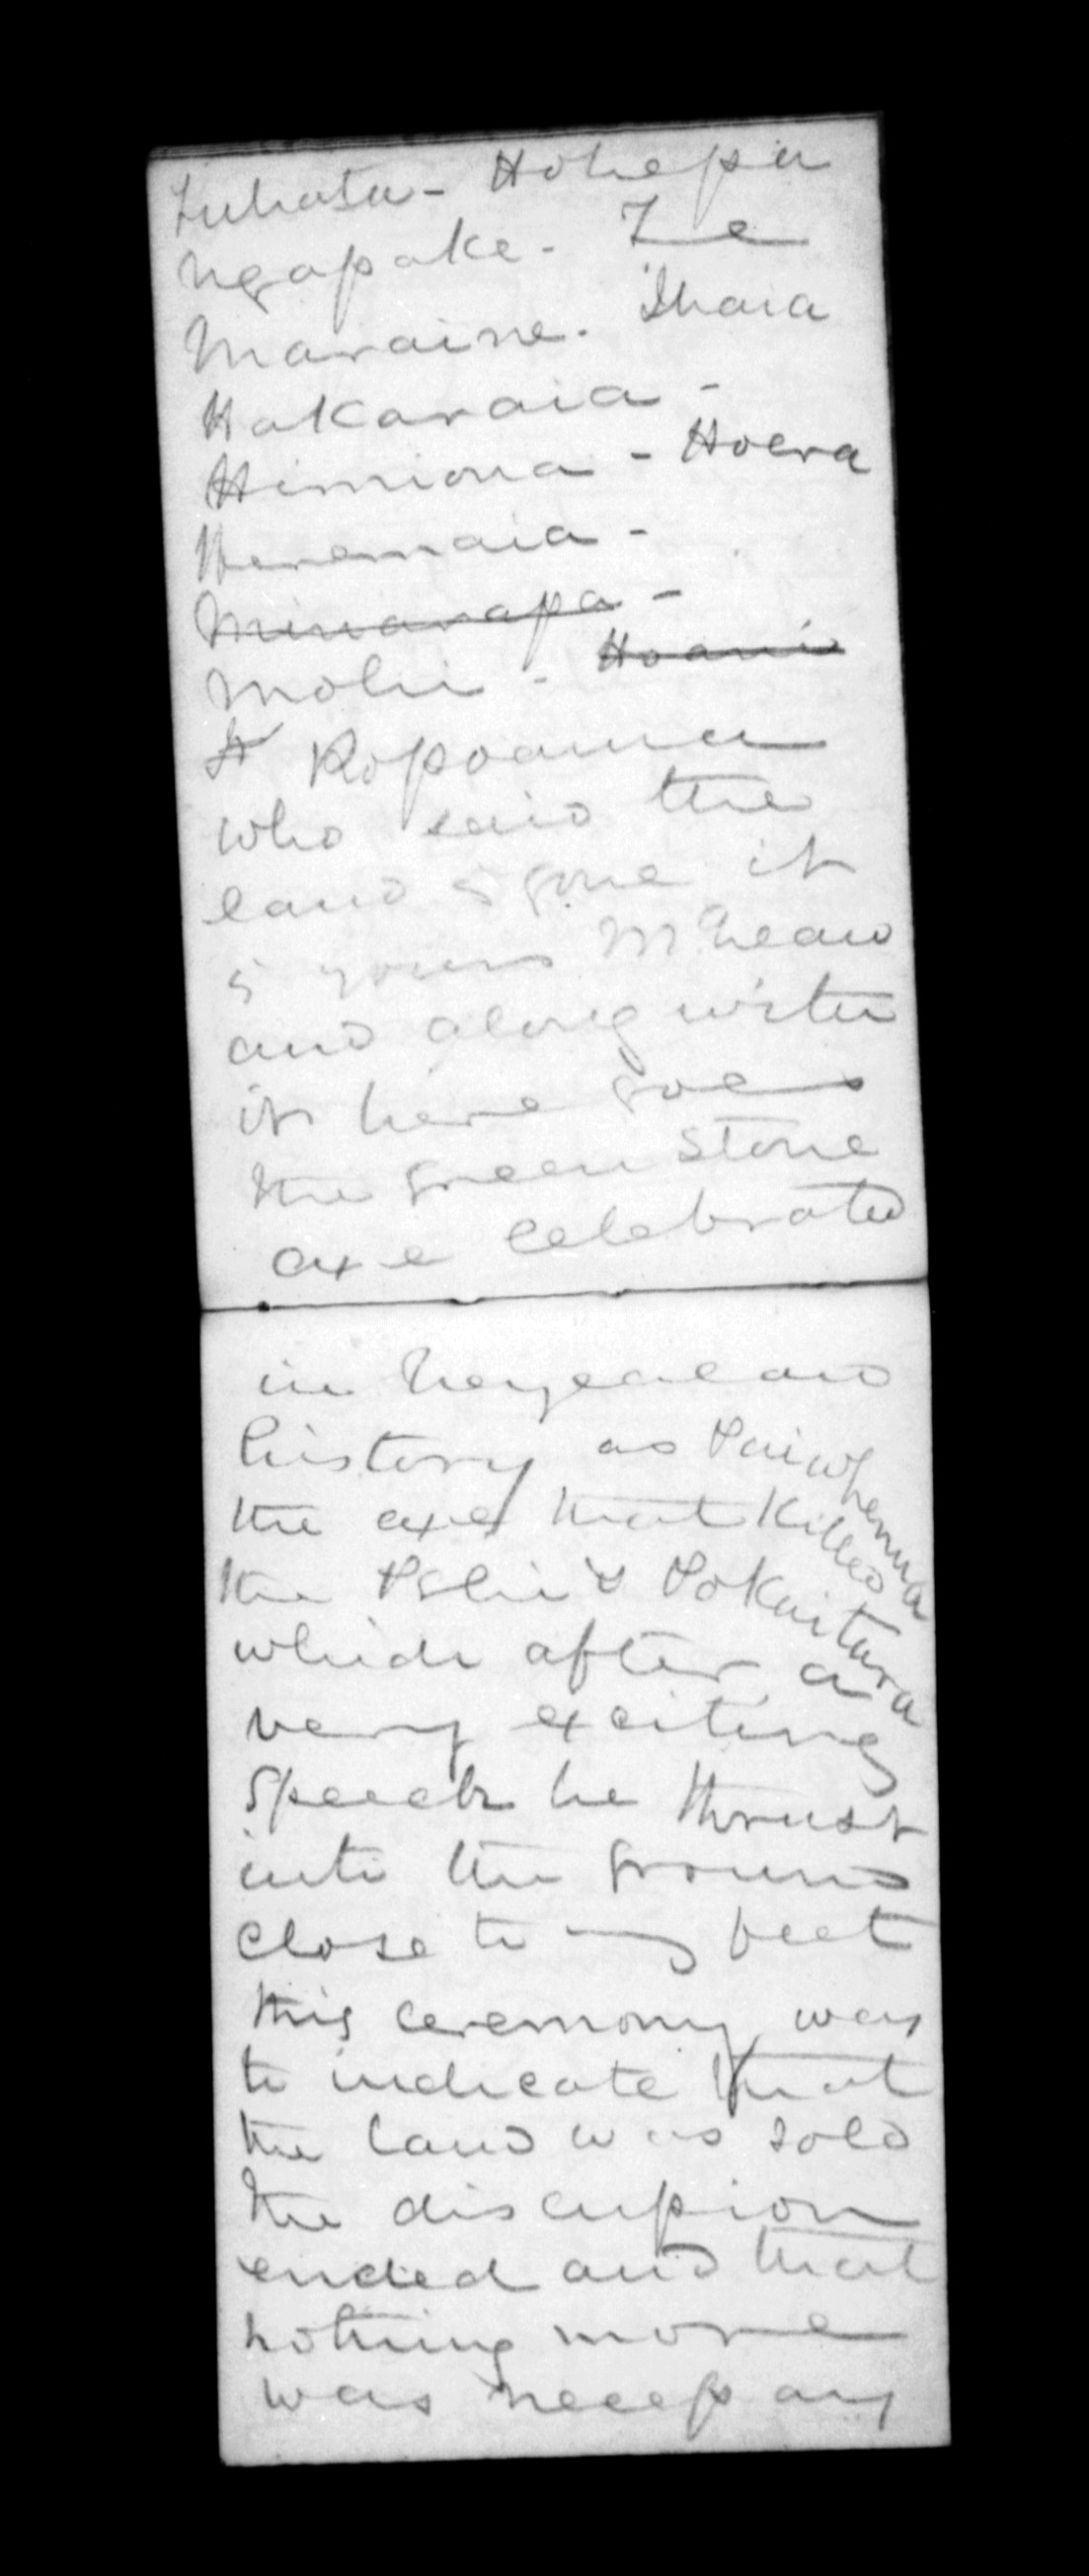 Tuhata - Hohepa
Ngapake - Te
Maraine. Ihaia
Hakaraia -
Himiona - Hoera
Heremaia -
Minarapa -
Mohi - Hoani
Ropoama
who said the
land is gone it
is yours McLean
and along with
it here goes
the green stone
axe celebrated
in New Zealand
history as Paiwhenua
the axe that killed
the & Pokaitara
which after a
very exciting
speech he thrust
into the ground
close to my feet
this ceremony was
to indicate that
the land was sold
the discussion
ended and that
nothing more
was necessary